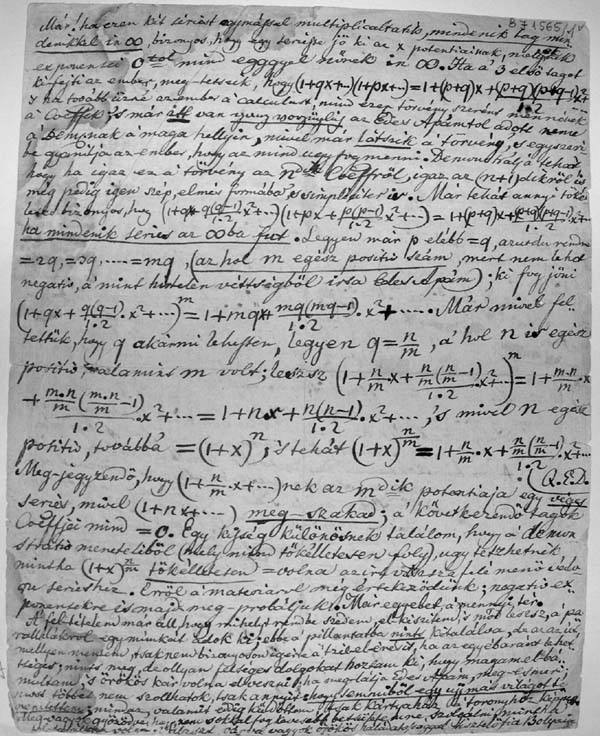 B J 1565/1v
Már, ha ezen két seriest egymással multiplicáltatik, mindenik tag min-
denikkel in ∞, bizonyos, hogy egy series jő ki az x potentiáinak,
exponensei 0tól mind eggyel nőnek in ∞. Ha a' 3 első tagot
ki fejti az ember, meg tetszik, hogy (1+qx+..)(1+px+..) = 1+(p+q)x+(p+q)(p+q-1)/1·2 x²
's ha tovább űzné az ember a' calculust, mind ezen törvény szerént mennének
a' Coeffic. 's már itt van az Édes Apámtól adott neme
a' a' maga hellyén, mivel már látszik a' törvény, 's egyszeri
be az ember, hogy az mind úgy fog menni. Demonstrálja tehát
hogy ha igaz ez a' törvény az n Coeffről, igaz az (n+1)dikről is
még pedig igen szép, elmés formába, 's simpliciter is. Már tehát annyi tökél
letes bizonyos, hogy (1+qx+q(q-1)/1·2 x²+...)(1+px+p(p-1)/1·2 x²+...) = 1+(p+q)x+(p+q)(p+q-1)/1·2 x²+...
ha mindenik series az ∞ba fut. Legyen már p elébb = q, azután rendre
= 2q, = 3q, ..... = mq, (az hol m egész positiv szám, mert nem lehet
negativ, a' mint hirtelen vettségből írta Édes Apám); ki fog jőni
(1+qx+q(q-1)/1·2 ·x²+...)^m = 1+mqx+mq(mq-1)/1·2 ·x²+..... Már mivel fel-
tettük, hogy q akármi lehessen, legyen q = n/m, a' hol n is egész
positiv, valamint m volt; lessz (1+n/m x+n/m(n/m-1)/1·2 ·x²+...)^m = 1+m·n/m·x
+ m·n/m(m·n/m-1)/1·2 ·x²+.... = 1+n·x+n(n-1)/1·2 ·x²+..., 's mivel n egész
positiv, továbbá = (1+x)^n, 's tehát (1+x)^n/m = 1+n/m·x+n/m(n/m-1)/1·2 ·x²+...
(Q.E.D.
Meg-jegyzendő, hogy (1+n/m·x+...)nek az mdik potentiája egy véges
series, mivel (1+nx+....) meg-szakad; a' következendő tagok
Coeffjei mind = 0. Egy kitség különösnek találom, hogy a' demon
stratio meneteliből (mely mind tökélletesen foly), ugy tetszhetnék
mintha (1+x)^n/m tökélletesen = volna azért felé menő
serieshez. Erről a' materiáról még értekeződünk; negativ ex-
ponensekre is majd meg-probáljuk. Már egyebet, a' mennyi tér.
A' fel-tételem már áll, hogy mihelyt rendbe szedem, el készítem, 's mód lessz, a' pa-
rallelákról egy munkát adok ki; ebbe a' pillantatba nints kitalálva, de az az út,
mellyen mentem, tsak nem bizonyoson igérte a' tzél el érését, ha az egyébaránt lehet-
séges; nints meg, de ollyan felséges dolgokat hoztam ki, hogy magamat
el bámultam, 's örökös kár volna elveszni; ha meglátja Édes Apám, meg-esmeri;
most többet nem szollhatok, tsak annyit: hogy semmiből egy uj más világot
teremtettem; mindaz, valamit eddig küldöttem, tsak kártyaház a' toronyhoz képest.
Meg vagyok győződve, hogy nem sokkal fog kevesebb betsületemre szolgálni, mintha
Bolyai